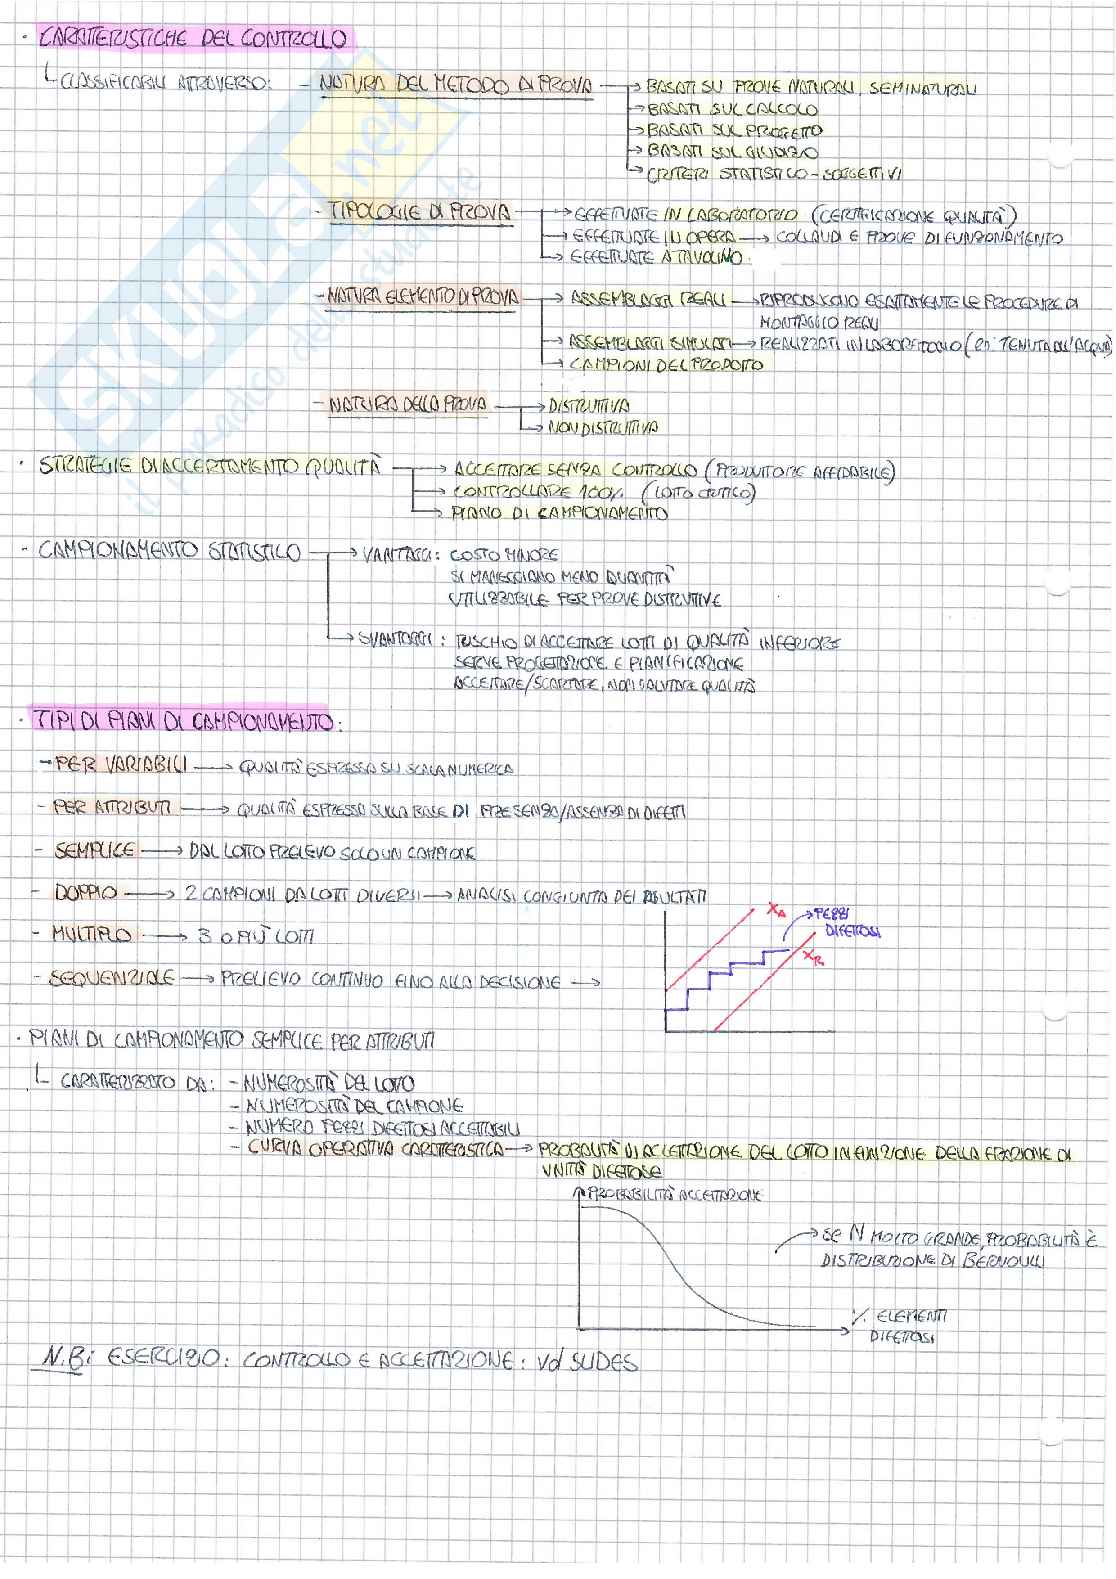 · CARATTERISTICHE DEL CONTROLLO
CLASSIFICABILI ATTRAVERSO: - NATURA DEL METODO DI PROVA → BASATI SU PROVE NATURALI, SEMINATURALI
→ BASATI SUL CALCOLO
→ BASATI SUL PROGETTO
→ BASATI SUL GIUDIZIO
→ CRITERI STATISTICO-SOGGETTIVI
- TIPOLOGIE DI PROVA → EFFETTUATE IN LABORATORIO (CERTIFICAZIONE QUALITÀ)
→ EFFETTUATE IN OPERA → COLLAUDI E PROVE DI FUNZIONAMENTO
→ EFFETTUATE A TAVOLINO.
- NATURA ELEMENTO DI PROVA → ASSEMBLAGGI REALI → RIPRODUCONO ESATTAMENTE LE PROCEDURE DI
MONTAGGIO REALI
→ ASSEMBLAGGI SIMULATI → REALIZZATI IN LABORATORIO (ES. TENUTA ALL'ACQUA)
→ CAMPIONI DEL PRODOTTO
- NATURA DELLA PROVA → DISTRUTTIVA
→ NON DISTRUTTIVA
· STRATEGIE DI ACCERTAMENTO QUALITÀ → ACCETTARE SENZA CONTROLLO (PRODUTTORE AFFIDABILE)
→ CONTROLLARE 100% (LOTTO CRITICO)
→ PIANO DI CAMPIONAMENTO
- CAMPIONAMENTO STATISTICO → VANTAGGI: COSTO MINORE
SI MANEGGIANO MENO QUANTITÀ
UTILIZZABILE PER PROVE DISTRUTTIVE
→ SVANTAGGI: RISCHIO DI ACCETTARE LOTTI DI QUALITÀ INFERIORE
SERVE PROGETTAZIONE E PIANIFICAZIONE
ACCETTARE/SCARTARE, NON VALUTARE QUALITÀ
· TIPI DI PIANI DI CAMPIONAMENTO:
- PER VARIABILI → QUALITÀ ESPRESSA SU SCALA NUMERICA
- PER ATTRIBUTI → QUALITÀ ESPRESSA SULLA BASE DI PRESENZA/ASSENZA DI DIFETTI
- SEMPLICE → DAL LOTTO PRELEVO SOLO UN CAMPIONE
- DOPPIO → 2 CAMPIONI DA LOTTI DIVERSI → ANALISI CONGIUNTA DEI RISULTATI
- MULTIPLO → 3 O PIÙ LOTTI
- SEQUENZIALE → PRELIEVO CONTINUO FINO ALLA DECISIONE →
XA
→ PEZZI
DIFETTOSI
XR
· PIANI DI CAMPIONAMENTO SEMPLICE PER ATTRIBUTI
CARATTERIZZATO DA: - NUMEROSITÀ DEL LOTTO
- NUMEROSITÀ DEL CAMPIONE
- NUMERO PEZZI DIFETTOSI ACCETTABILI
- CURVA OPERATIVA CARATTERISTICA → PROBABILITÀ DI ACCETTAZIONE DEL LOTTO IN FUNZIONE DELLA FRAZIONE DI
UNITÀ DIFETTOSE
PROBABILITÀ ACCETTAZIONE
→ SE N MOLTO GRANDE, PROBABILITÀ È
DISTRIBUZIONE DI BERNOULLI
% ELEMENTI
DIFETTOSI
N.B: ESERCIZIO: CONTROLLO E ACCETTAZIONE: Vd SLIDES
SKUOLA.net
il paradiso dello studente